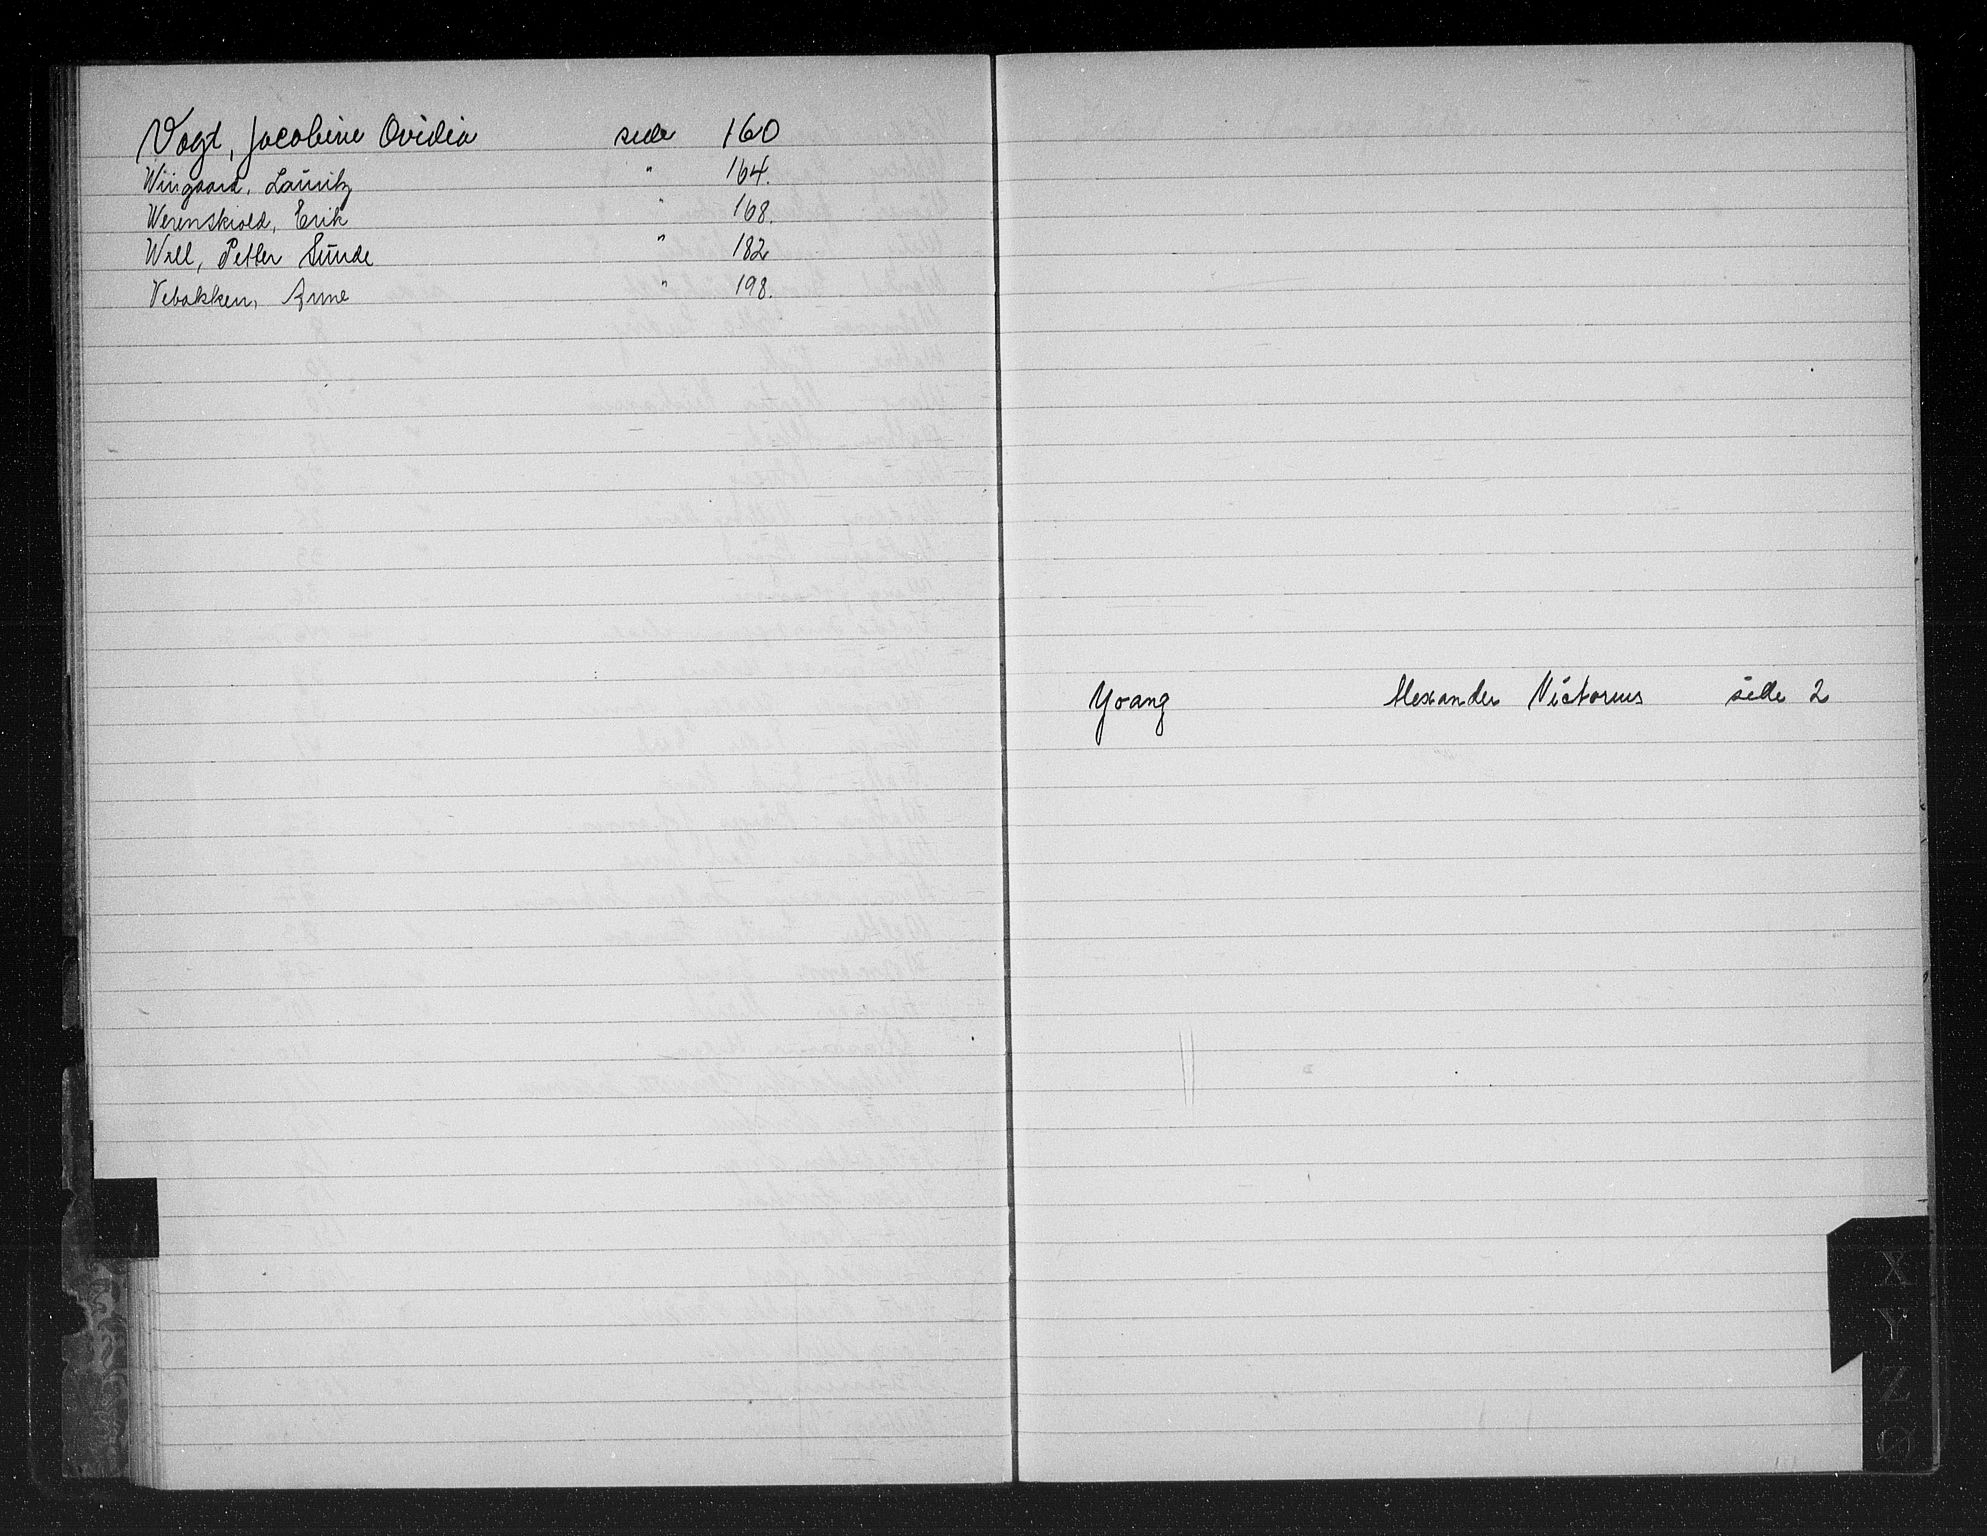 Vogt, Jacobine Ovidia side 160
Wiingaard, Lauritz " 164.
Werenskiold, Erik " 168.
Wall, Petter Sunde " 182
Vebakken, Anne " 198.
Yoang Alexander Victorius side 2
X
Y
Z
Ø